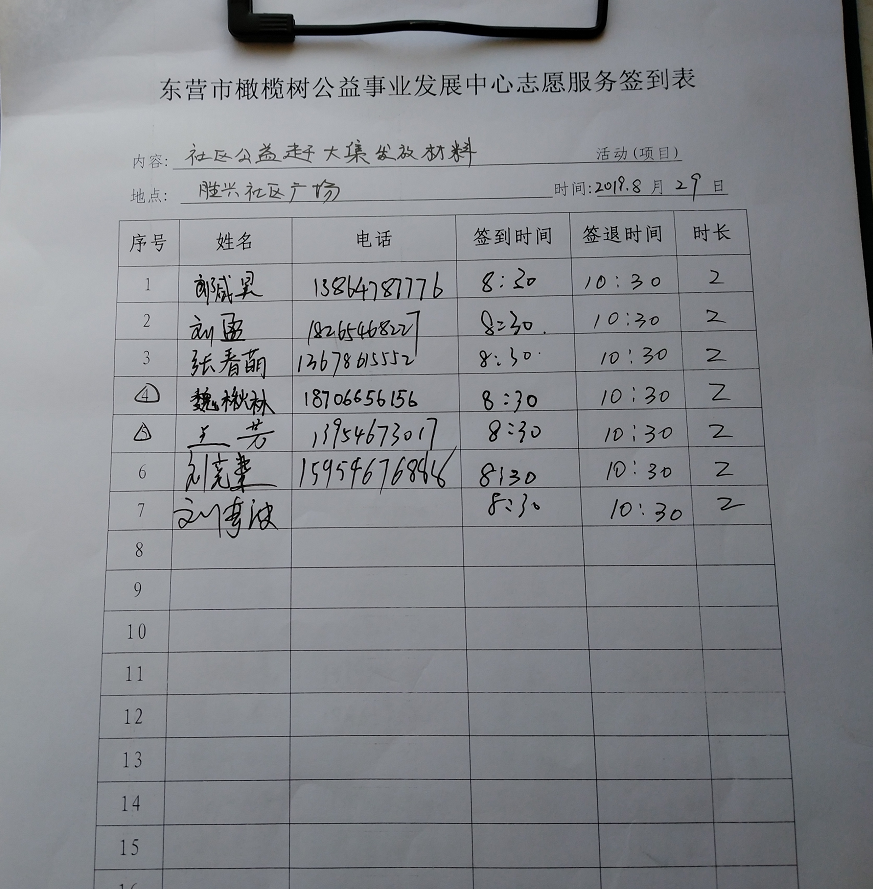 东营市橄榄树公益事业发展中心志愿服务签到表
内容: 社区公益赶大集发放材料 活动(项目)
地点: 胜兴社区广场 时间:2019.8月29日
序号 姓名 电话 签到时间 签退时间 时长
1 13864787776 8:30 10:30 2
2 刘孟 18265468227 8:30 10:30 2
3 张春萌 13678615552 8:30 10:30 2
4 魏楸林 18706656156 8:30 10:30 2
5 王芳 13954673017 8:30 10:30 2
6 8:30 10:30 2
7 8:30 10:30 2
8
9
10
11
12
13
14
15
16